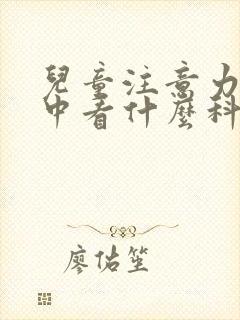 兒童注意力
中看什麼科
廖佑笙